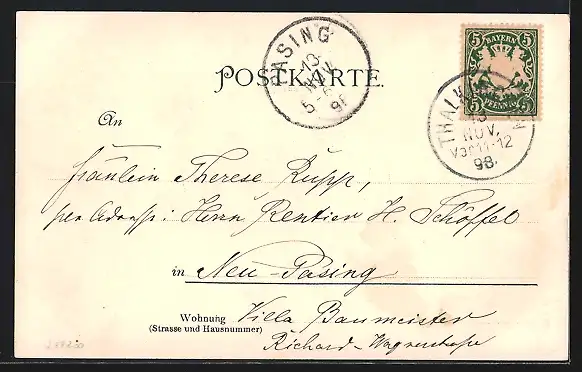 PASING
13.
NOV.
5-6
98
5 BAYERN 5
5 PFENNIG 5
POSTKARTE.
THALK
13
NOV.
Vor 11-12
98.
An
Fräulein Therese Rupp,
per Adresse: Herrn Rentier H. Schöffel
in Neu-Pasing
Wohnung Villa Baumeister
(Strasse und Hausnummer)
Richard-Wagnerstraße